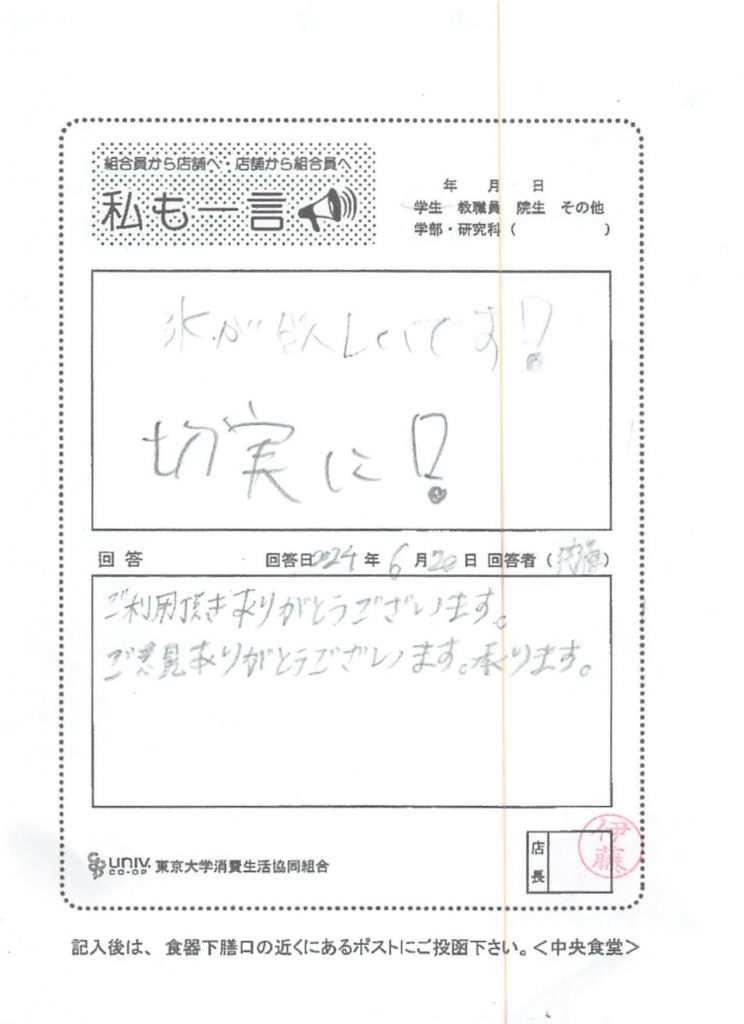 組合員から店舗へ・店舗から組合員へ
私も一言
年 月 日
学生 教職員 院生 その他
学部・研究科( )
氷が欲しいです!
切実に!
回答 回答日2024年6月20日 回答者( )
ご利用頂きありがとうございます。
ご意見ありがとうございます。承ります。
univ.
CO-OP
東京大学消費生活協同組合
店長
伊藤
記入後は、食器下膳口の近くにあるポストにご投函下さい。<中央食堂>